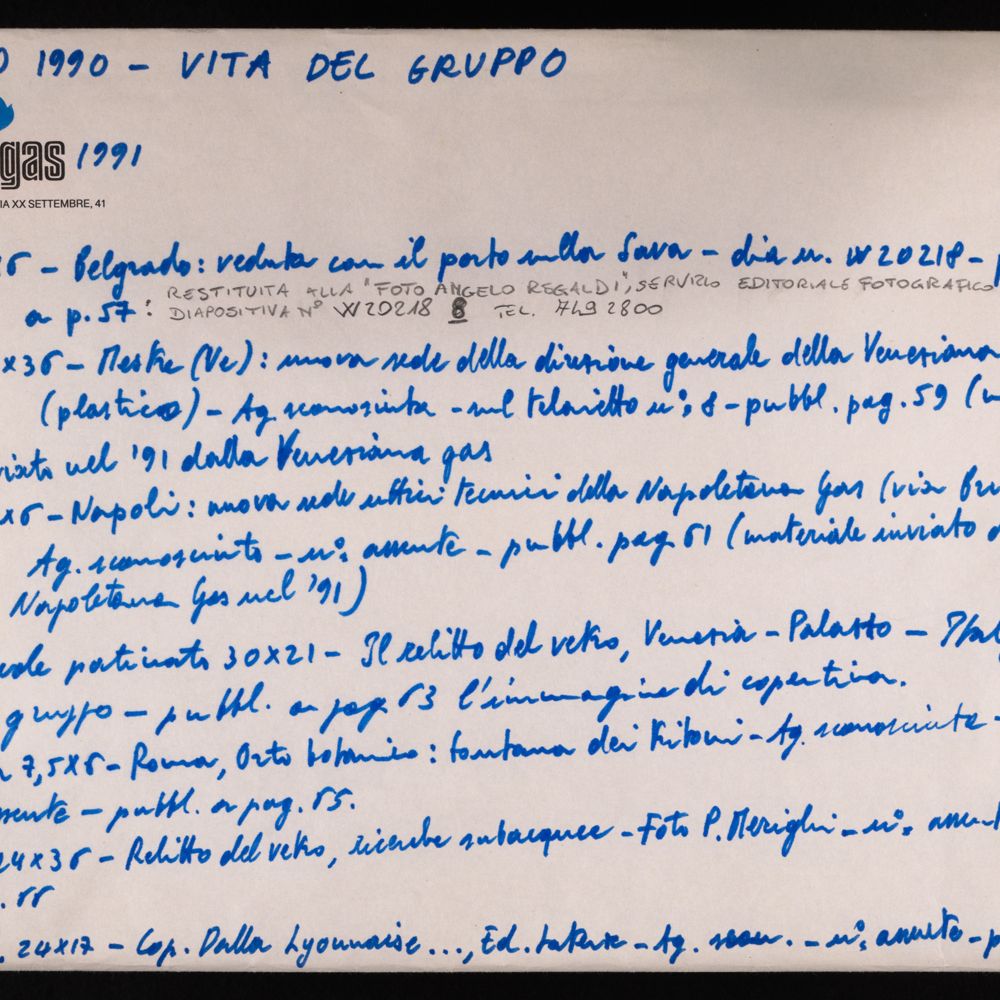 O 1990 - VITA DEL GRUPPO
gas 1991
IA XX SETTEMBRE, 41
36 - Belgrado: veduta con il porto sulla Sava - dia n. W 20218 -
a p. 57: RESTITUITA ALLA "FOTO ANGELO REGALDI", SERVIZIO EDITORIALE FOTOGRAFICO
DIAPOSITIVA N° W20218 8 TEL. 749 2800
x36 - Mestre (Ve): nuova sede della direzione generale della Veneziana
(plastico) - Ag. sconosciuta - sul telaietto n°: 8 - pubbl. pag. 59 (
viato nel '91 dalla Veneziana gas
x6 - Napoli: nuova sede uffici tecnici della Napoletana Gas (via
Ag. sconosciuta - n°: assente - pubbl. pag. 61 (materiale inviato d
Napoletana Gas nel '91)
patinato 30x21 - Il relitto del vetro, Venezia - Palazzo - Italg
gruppo - pubbl. a pag. 63 l'immagine di copertina.
7,5x6 - Roma, Orto botanico: fontana dei Tritoni - Ag. sconosciuta -
sente - pubbl. a pag. 65.
24x36 - Relitto del vetro, ricerche subacquee - Foto P. Merighi - n°: assent
. 66
. 24x17 - Cop. Dalla Lyonnaise..., Ed. Laterza - Ag. scon. - n°: assente - p